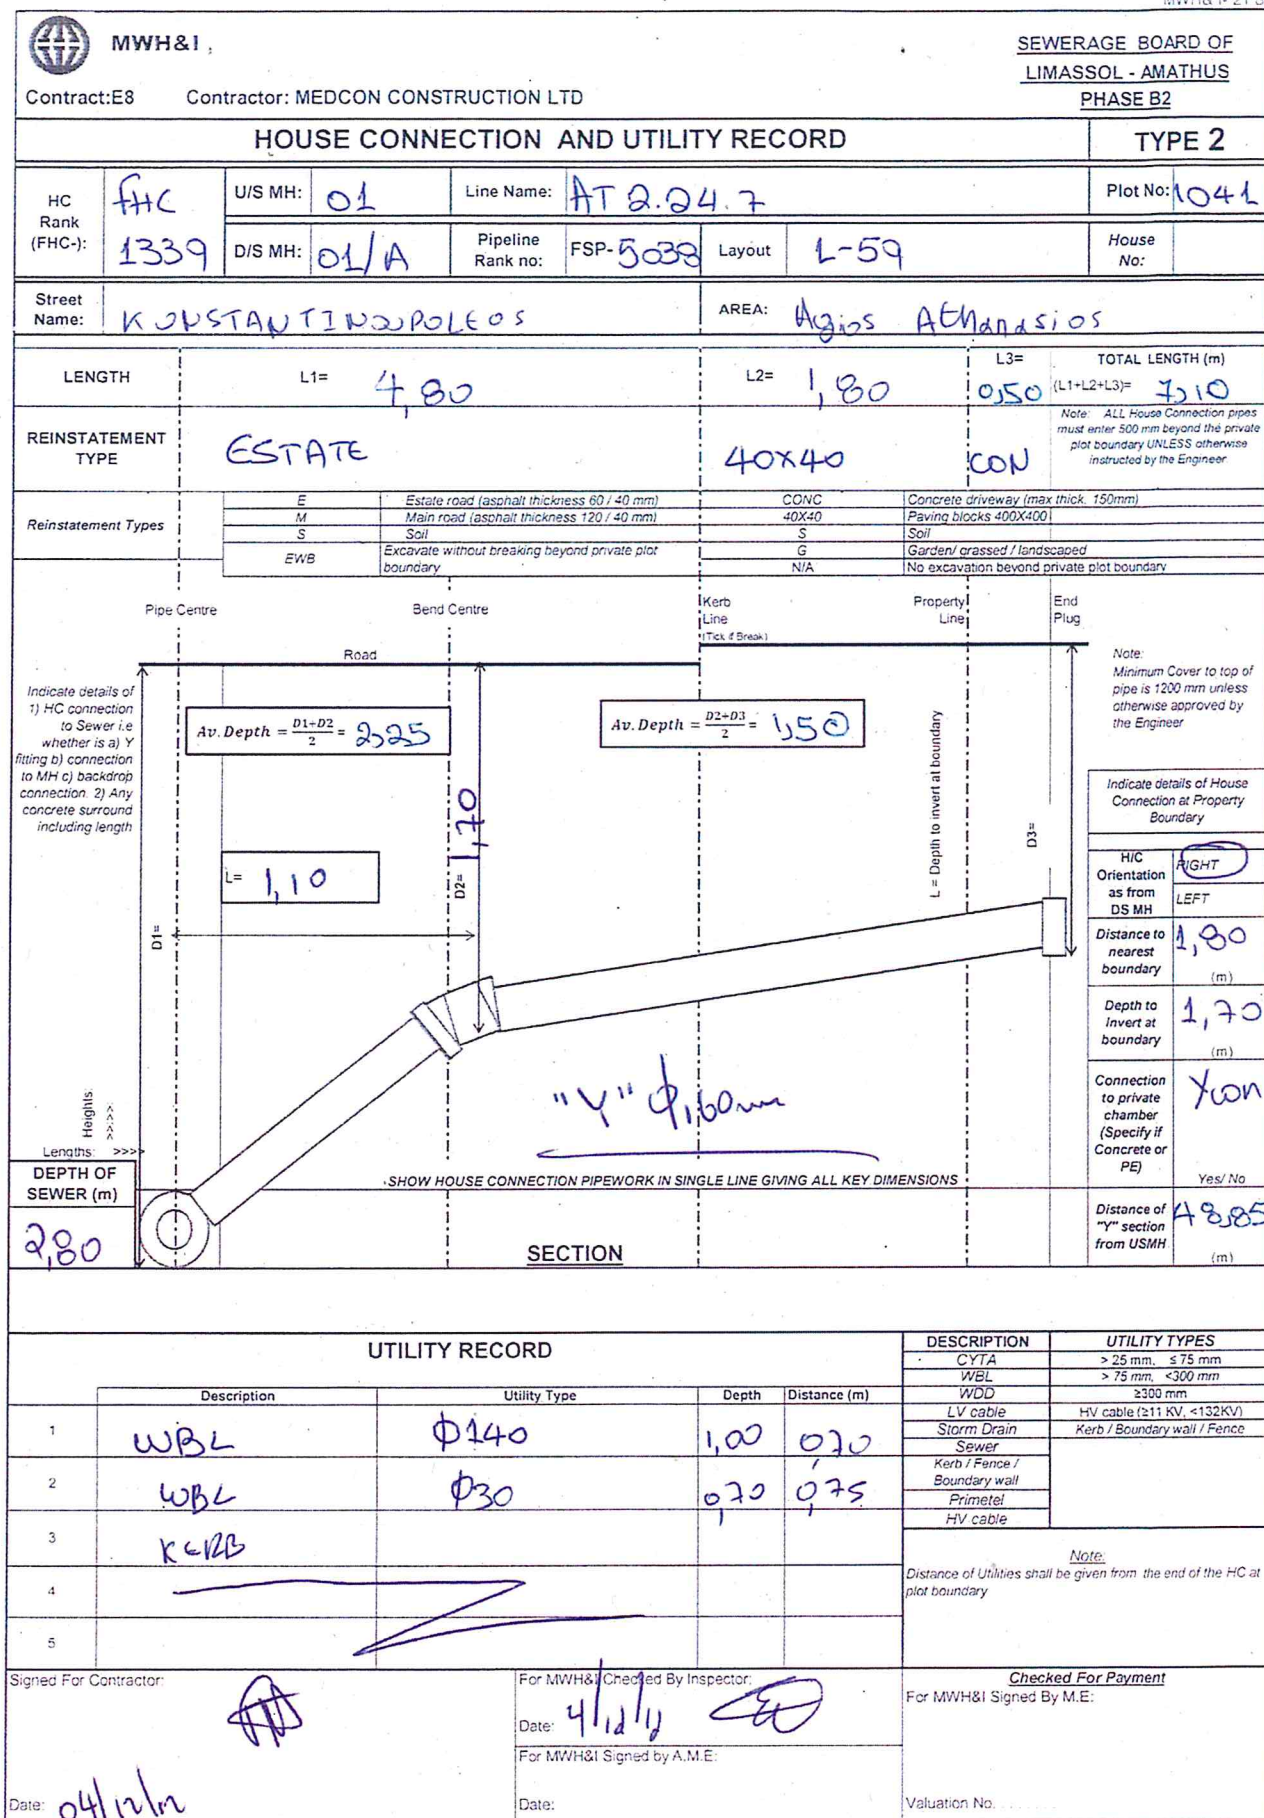 MWH&I
SEWERAGE BOARD OF
LIMASSOL - AMATHUS
PHASE B2
Contract:E8 Contractor: MEDCON CONSTRUCTION LTD
HOUSE CONNECTION AND UTILITY RECORD TYPE 2
HC Rank (FHC-): FHC 1339
U/S MH: 01 Line Name: AT 2.24.7 Plot No: 1041
D/S MH: 01/A Pipeline Rank no: FSP-5038 Layout L-59 House No:
Street Name: KONSTANTINOUPOLEOS AREA: Agios Athanasios
LENGTH L1= 4,80 L2= 1,80 L3= 0,50 TOTAL LENGTH (m) (L1+L2+L3)= 7,10
REINSTATEMENT TYPE ESTATE 40x40 CON
Note: ALL House Connection pipes
must enter 500 mm beyond the private
plot boundary UNLESS otherwise
instructed by the Engineer
Reinstatement Types
E Estate road (asphalt thickness 60 / 40 mm) CONC Concrete driveway (max thick. 150mm)
M Main road (asphalt thickness 120 / 40 mm) 40X40 Paving blocks 400X400
S Soil S Soil
EWB Excavate without breaking beyond private plot boundary G Garden/ grassed / landscaped
N/A No excavation beyond private plot boundary
Pipe Centre Bend Centre Kerb Line (Tick if Break) Property Line End Plug
Road
Indicate details of
1) HC connection
to Sewer i.e
whether is a) Y
fitting b) connection
to MH c) backdrop
connection. 2) Any
concrete surround
including length
Av.Depth = D1+D2/2 = 2,25
Av.Depth = D2+D3/2 = 1,50
Note:
Minimum Cover to top of
pipe is 1200 mm unless
otherwise approved by
the Engineer
L= 1,10
D1=
D2= 1,70
L = Depth to invert at boundary
D3=
Indicate details of House
Connection at Property
Boundary
H/C Orientation as from DS MH RIGHT
LEFT
Distance to nearest boundary 1,80 (m)
Depth to Invert at boundary 1,70 (m)
Connection to private chamber (Specify if Concrete or PE) Ycon Yes/ No
Distance of "Y" section from USMH 48,85 (m)
"Y" Φ160mm
Heights: >>>>
Lengths: >>>>
DEPTH OF SEWER (m)
2,80
SHOW HOUSE CONNECTION PIPEWORK IN SINGLE LINE GIVING ALL KEY DIMENSIONS
SECTION
UTILITY RECORD
Description Utility Type Depth Distance (m)
1 WBL Φ140 1,00 0,70
2 WBL Φ30 0,70 0,75
3 KERB
4
5
DESCRIPTION UTILITY TYPES
CYTA > 25 mm, ≤ 75 mm
WBL > 75 mm, <300 mm
WDD ≥300 mm
LV cable HV cable (≥11 KV, <132KV)
Storm Drain Kerb / Boundary wall / Fence
Sewer
Kerb / Fence /
Boundary wall
Primetel
HV cable
Note:
Distance of Utilities shall be given from the end of the HC at
plot boundary
Signed For Contractor:
Date: 04/12/12
For MWH&I Checked By Inspector:
Date: 4/12/12
For MWH&I Signed by A.M.E:
Date:
Checked For Payment
For MWH&I Signed By M.E:
Valuation No.